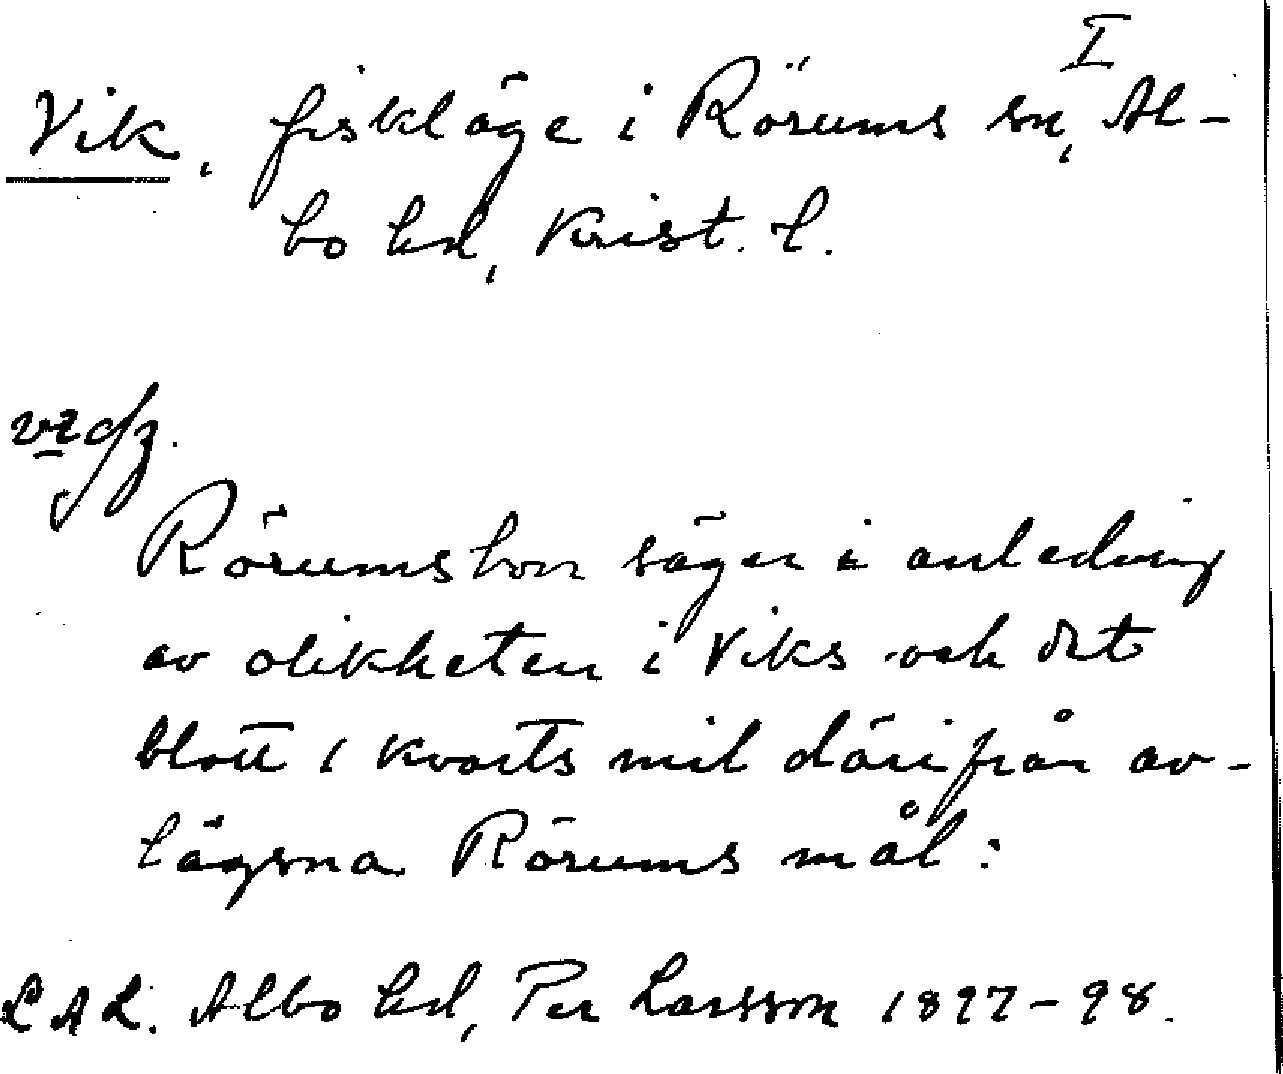 I
Vik, fiskläge i Rörums sn, Al-
bo hd, Krist. l.
Rörumsbon säger i anledning
av olikheten i Viks och det
blott 1 kvarts mil därifrån av-
lägsna Rörums mål:
L A L. Albo hd, Per Larsson 1897-98.